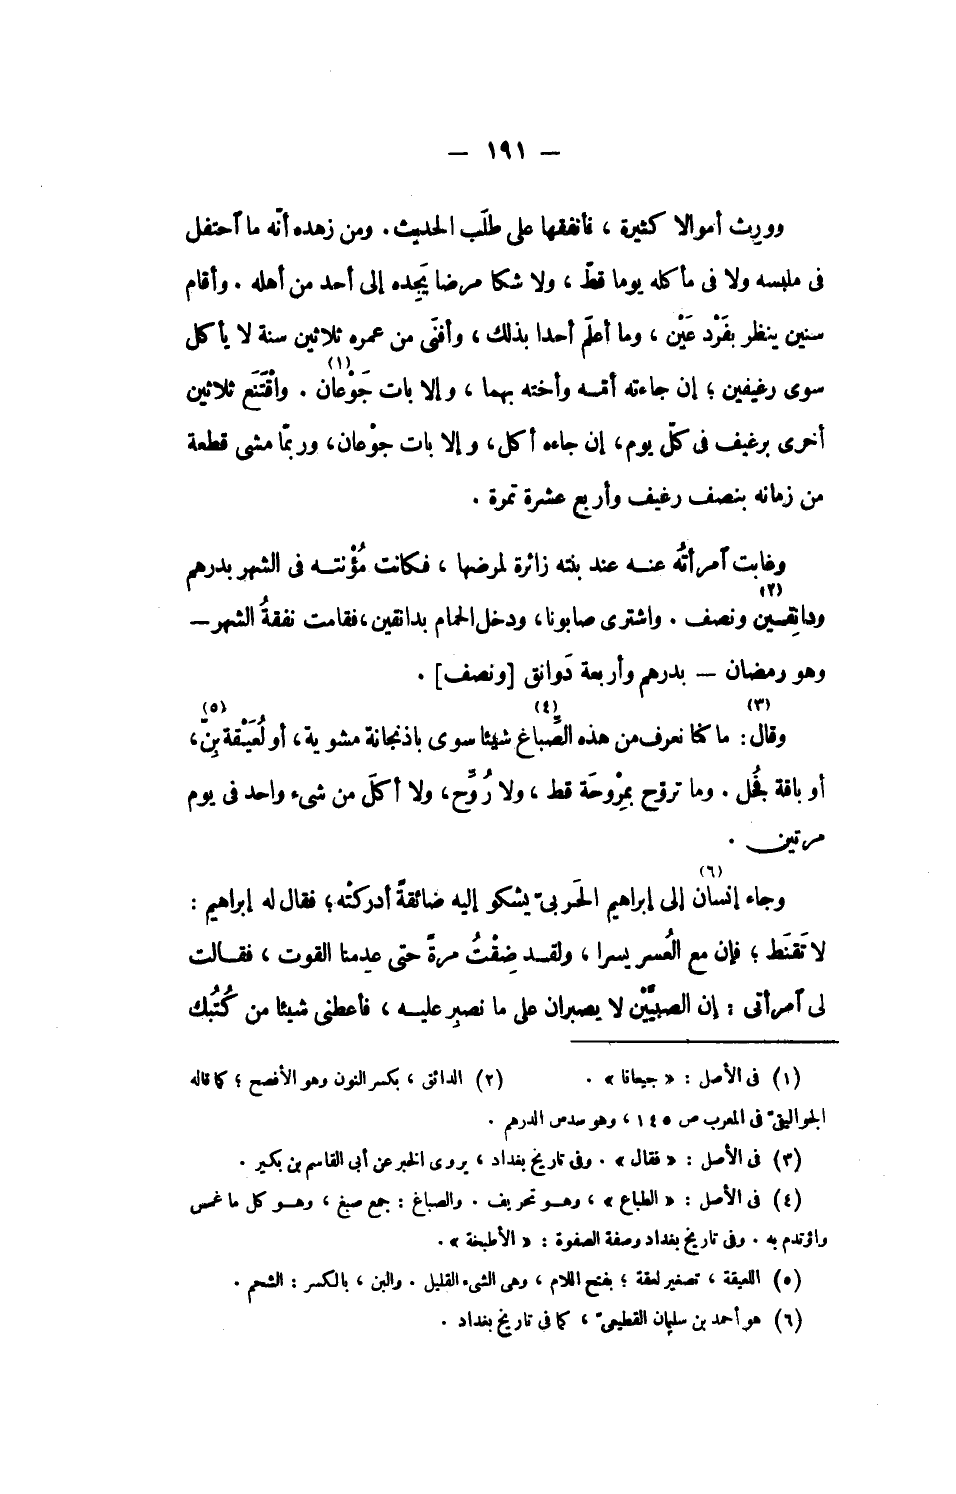 — ١٩١ —
وورِث أموالا كثيرة ، فأنفقها على طلَب الحديث . ومن زهده أنّه ما ٱحتفل
فى ملبسه ولا فى مأكله يوما قطّ ، ولا شكا مرضا يَجِده إلى أحد من أهله . وأقام
سنين ينظر بفَرْد عَيْن ، وما أعلَم أحدا بذلك ، وأفنَى من عمره ثلاثين سنة لا يأكل
سوى رغيفين ؛ إن جاءته أمّه وأخته بهما ، وإلا بات جَوْعان (١) . واقْتَنَع ثلاثين
أخرى برغيف فى كلّ يوم ، إن جاءه أكل ، وإلا بات جوْعان ، وربّما مشى قطعة
من زمانه بنصف رغيف وأربع عشرة تمرة .
وغابت ٱمرأتُه عنه عند بنته زائرة لمرضها ، فكانت مُؤْنته فى الشهر بدرهم
ودانِقين (٢) ونصف . واشترى صابونا ، ودخل الحمام بدانقين ، فقامت نفقةُ الشهر —
وهو رمضان — بدرهم وأربعة دَوانق [ونصف] .
وقال (٣) : ما كنا نعرف من هذه الصِّباغ (٤) شيئا سوى باذنجانة مشوية ، أو لُعَيْقة بِنّ (٥) ،
أو باقة فُجْل . وما تروّح بمِرْوحَة قط ، ولا رُوِّح ، ولا أكلَ من شىء واحد فى يوم
مرتين .
وجاء إنسان (٦) إلى إبراهيم الحَربىّ يشكو إليه ضائقةً أدركتْه ؛ فقال له إبراهيم :
لا تَقنَط ؛ فإن مع العُسر يسرا ، ولقد ضِقْتُ مرةً حتى عدِمنا القوت ، فقالت
لى ٱمرأتى : إن الصبيَّيْن لا يصبران على ما نصبِر عليه ، فأعطنى شيئا من كُتُبك
(١) فى الأصل : « جيعانا » . (٢) الدانق ، بكسر النون وهو الأفصح ؛ كما قاله
الجواليقىّ فى المعرب ص ١٤٥ ، وهو سدس الدرهم .
(٣) فى الأصل : « فقال » . وفى تاريخ بغداد ، يروى الخبر عن أبى القاسم بن بكير .
(٤) فى الأصل : « الطباع » ، وهو تحريف . والصباغ : جمع صبغ ، وهو كل ما غمس
واؤتدم به . وفى تاريخ بغداد وصفة الصفوة : « الأطبخة » .
(٥) اللعيقة ، تصغير لعقة ؛ بفتح اللام ، وهى الشىء القليل . والبن ، بالكسر : الشحم .
(٦) هو أحمد بن سليمان القطيعىّ ، كما فى تاريخ بغداد .